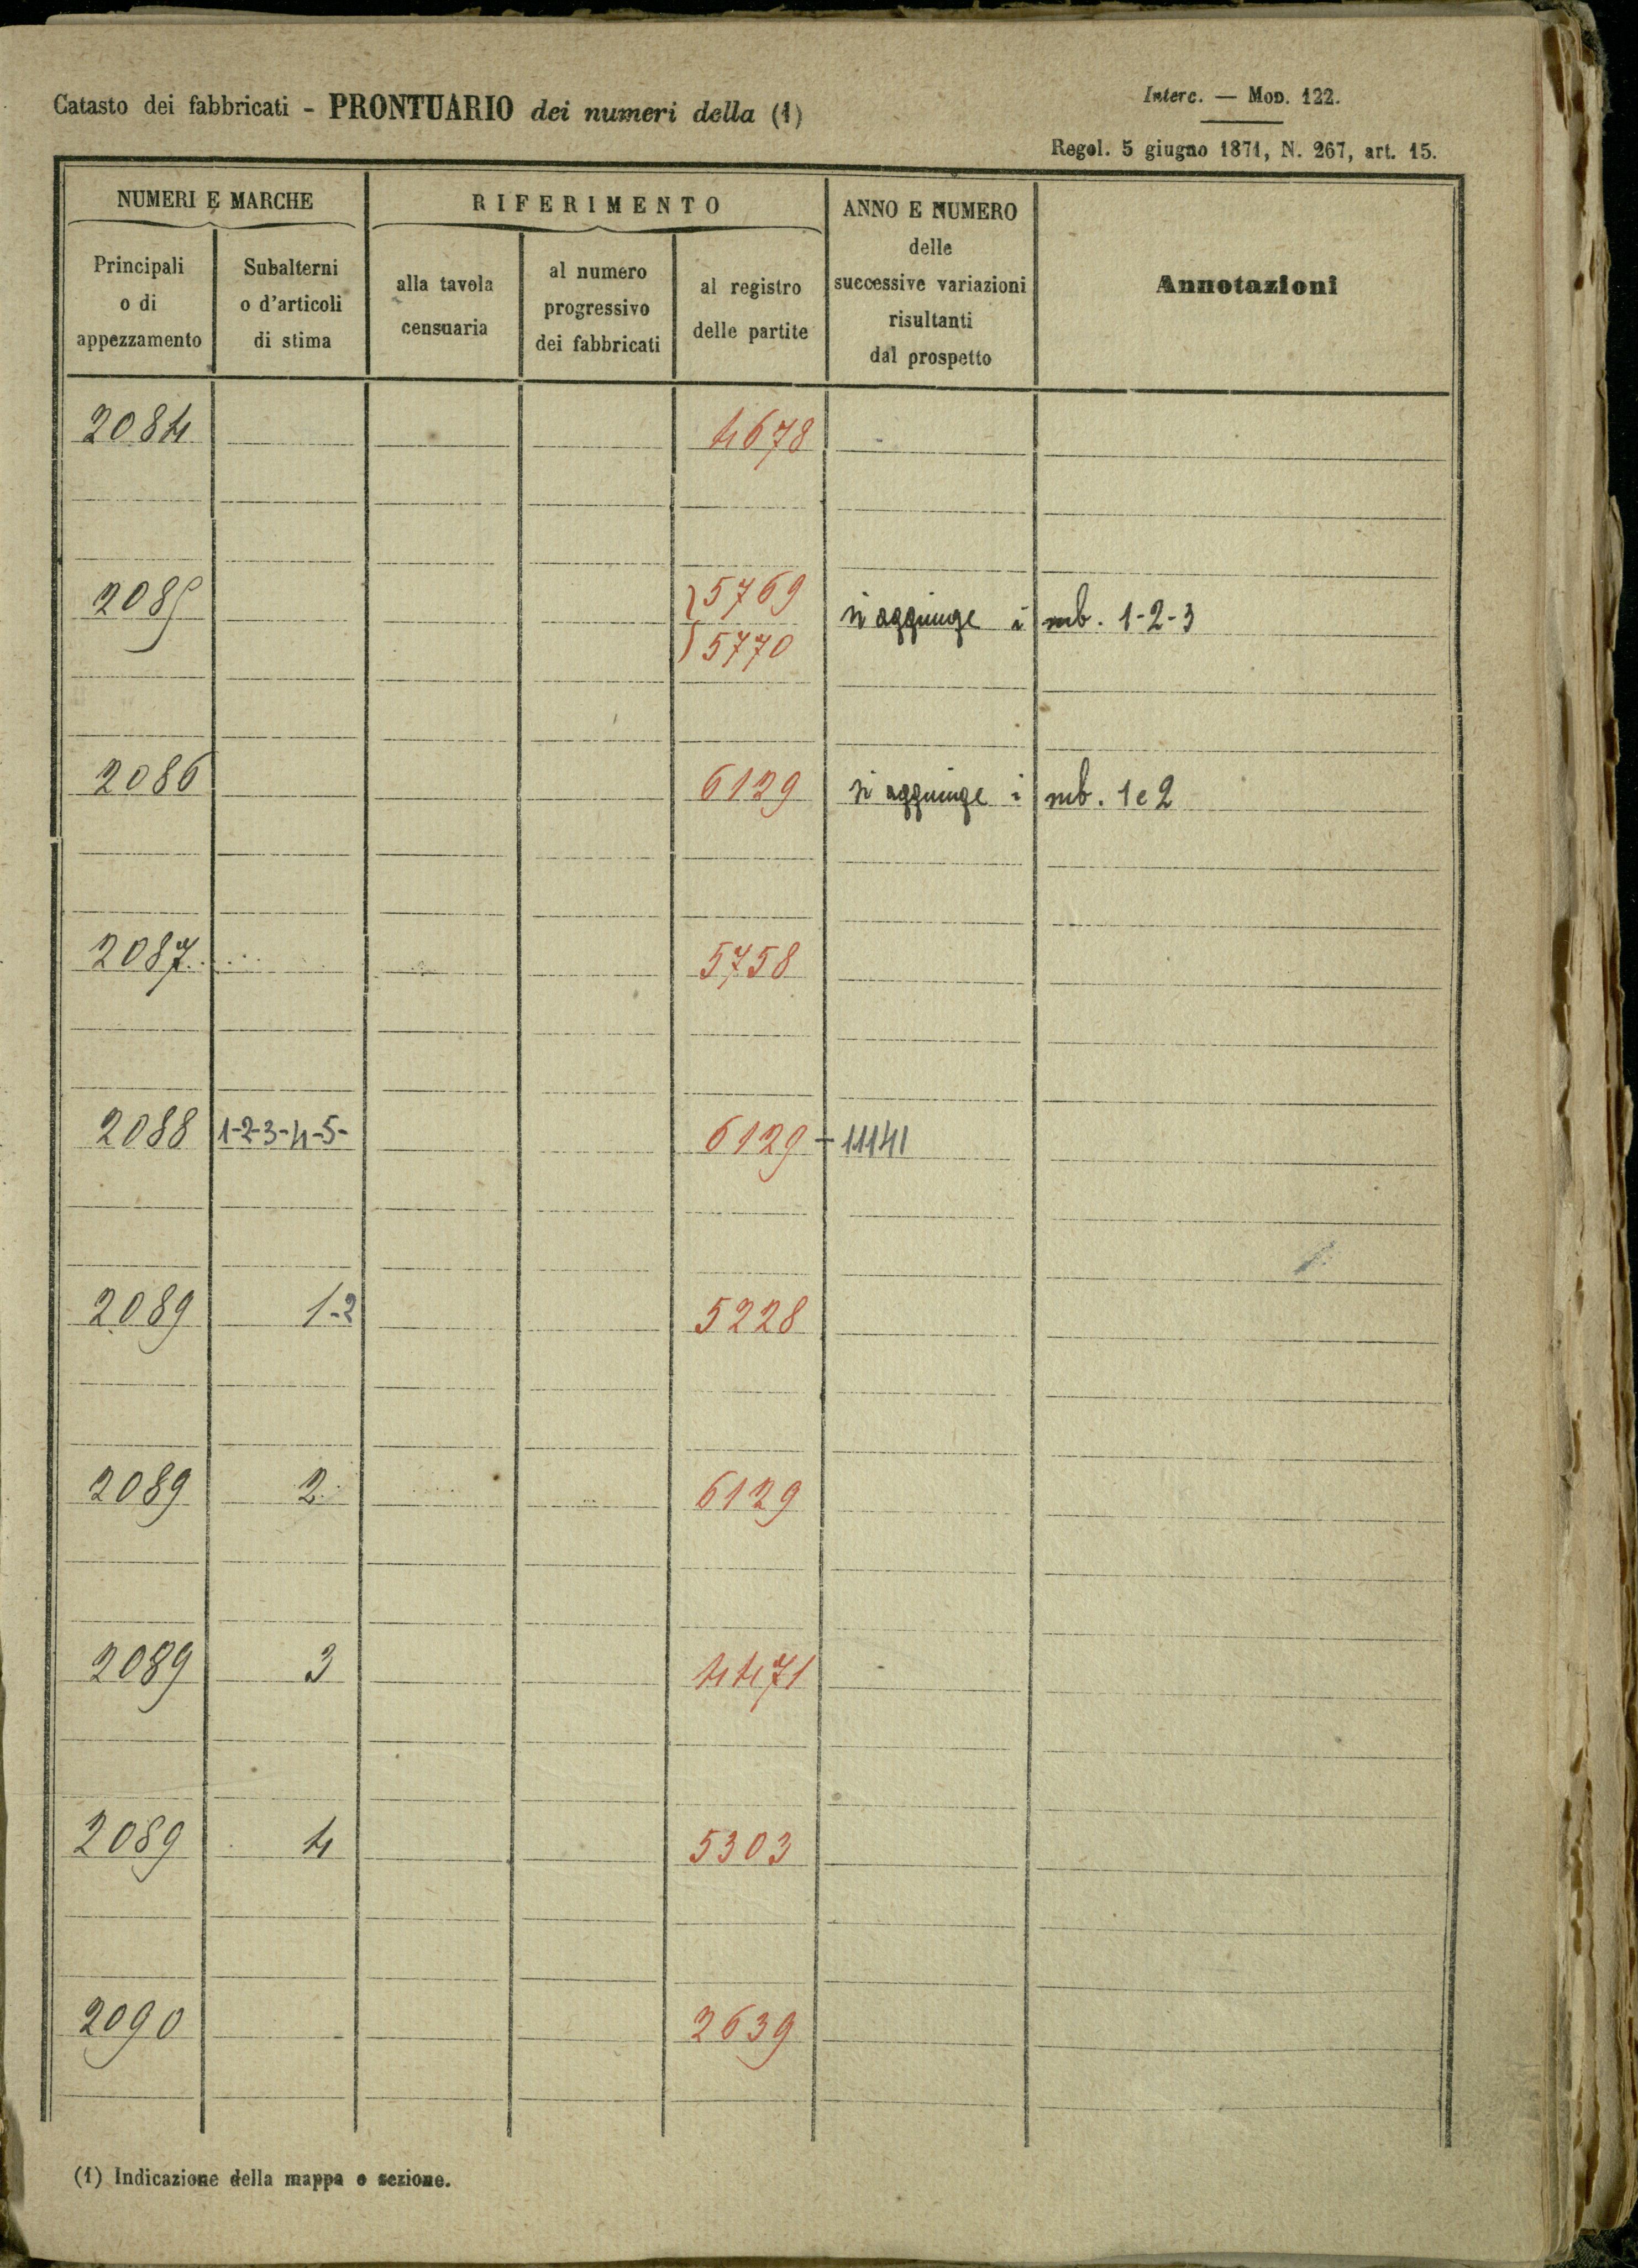 Catasto dei fabbricati - PRONTUARIO dei numeri della (1)
Interc. — Mod. 122.
Regol. 5 giugno 1871, N. 267, art. 15.
NUMERI E MARCHE
RIFERIMENTO
ANNO E NUMERO
delle
successive variazioni
risultanti
dal prospetto
Annotazioni
Principali
o di
appezzamento
Subalterni
o d'articoli
di stima
alla tavola
censuaria
al numero
progressivo
dei fabbricati
al registro
delle partite
2084 4678
2085 5769 si aggiunge i sub. 1-2-3
5770
2086 6129 si aggiunge i sub. 1 e 2
2087 5758
2088 1-2-3-4-5- 6129 + 11141
2089 1-2 5228
2089 2 6129
2089 3 4471
2089 4 5303
2090 2639
(1) Indicazione della mappa o sezione.